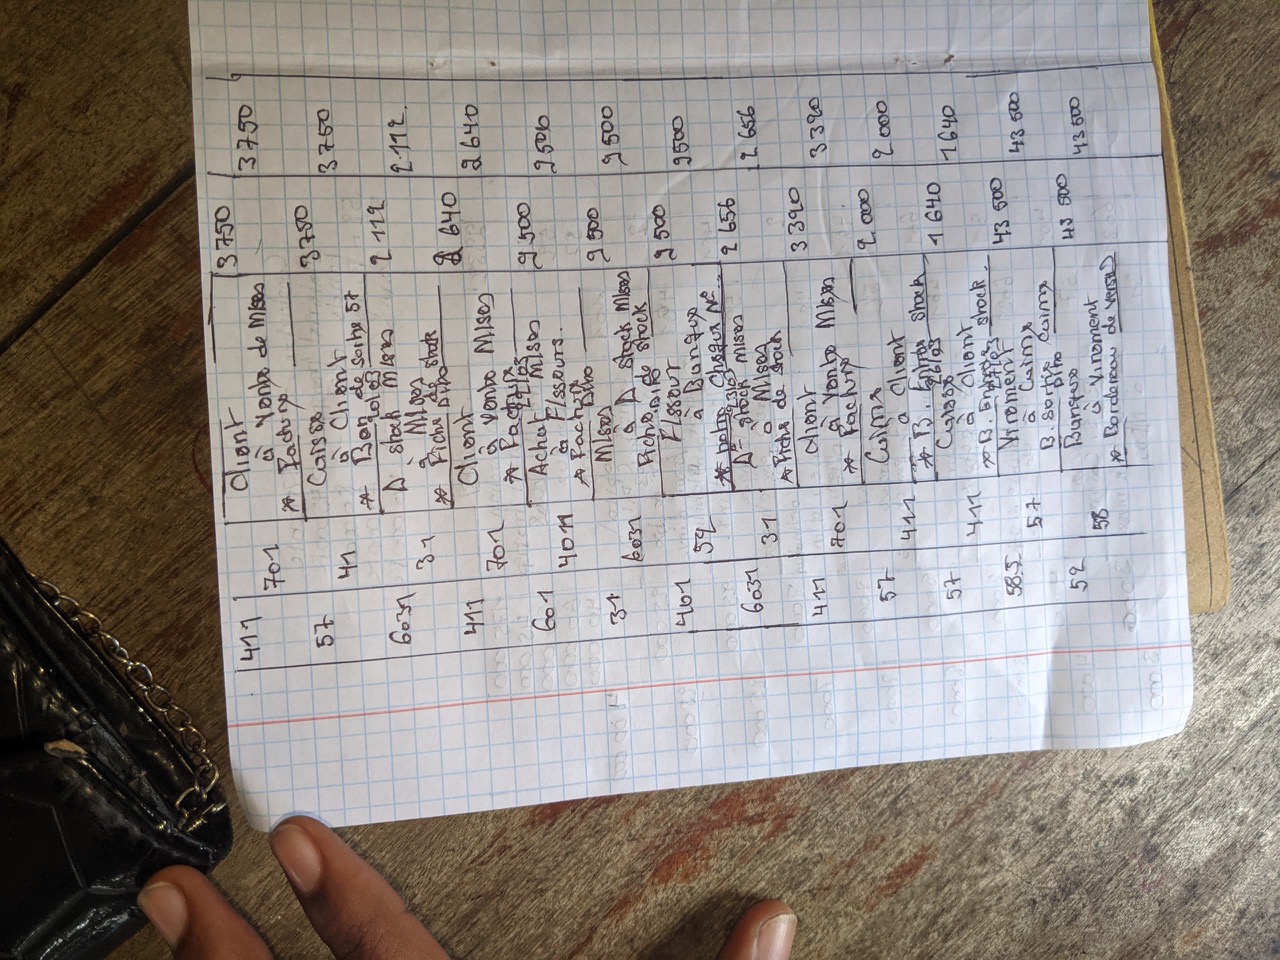 411 Client 3750
701 à Vente de Mises 3750
* Facture
57 Caisse 3750
411 à Client 3750
* Banque de Sortie 57
6031 Δ Stock Mises 2 112
31 à Mises 2 112.
* Fiche de stock
411 Client 2 640
701 à Vente Mises 2 640
* Facture
601 Achat Mises 2 500
401 à F/sseurs. 2 500
* Facture
31 Mises 2 500
6031 à Δ Stock Mises 2 500
Fiche de stock
401 F/sseur 2 500
52 à Banque 2500
* Chèque N° ...
6031 Δ° stock Mises 2 656
31 à Mises 2 656
* Fiche de stock
411 Client 3 320
701 à Vente Mises 3 320
* Facture
57 Caisse 2 000
411 à Client 2 000
* B. Entrée stock
57 Caisse 1 640
411 à Client 1 640
* B. Entrée stock.
585 Virement 43 500
57 à Caisse 43 500
B. sortie Caisse
52 Banque 43 500
58 à Virement 43 500
* Bordereau de Vers